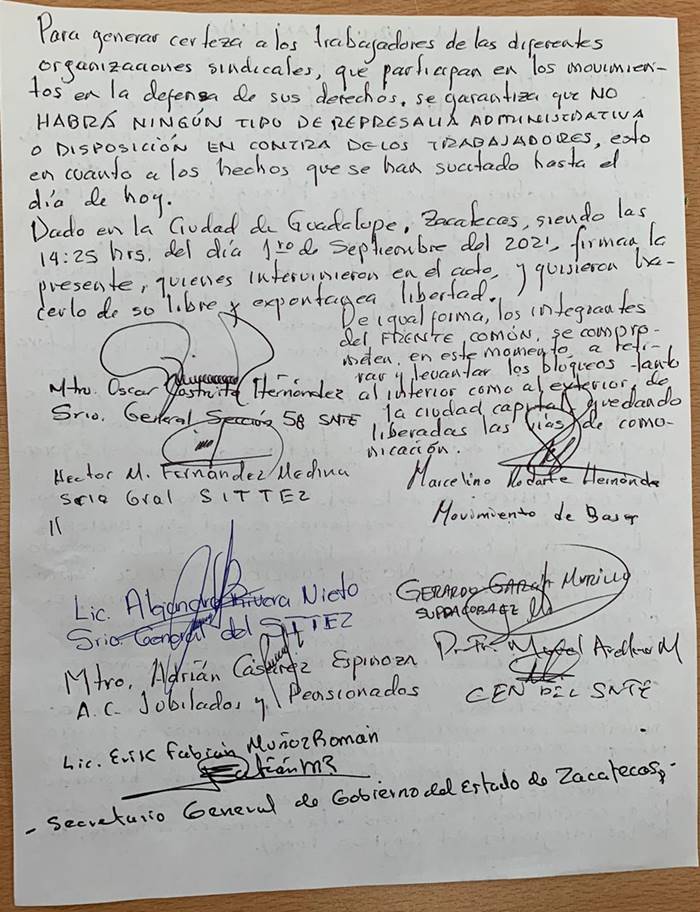 Para generar certeza a los trabajadores de las diferentes
organizaciones sindicales, que participan en los movimien-
tos en la defensa de sus derechos, se garantiza que NO
HABRÁ NINGÚN TIPO DE REPRESALIA ADMINISTRATIVA
O DISPOSICIÓN EN CONTRA DE LOS TRABAJADORES, esto
en cuanto a los hechos que se han sucitado hasta el
día de hoy.
Dado en la Ciudad de Guadalupe, Zacatecas, siendo las
14:25 hrs. del día 1ro de Septiembre del 2021, firman la
presente, quienes intervinieron en el acto, y quisieron ha-
cerlo de su libre y expontanea libertad.
De igual forma, los integrantes
del FRENTE COMÚN, se compro-
meten, en este momento, a reti-
rar y levantar los bloqueos tanto
al interior como al exterior, de
la ciudad capital, quedando
liberadas las vías de comu-
nicación.
Mtro. Oscar Castruita Hernández
Srio. General Sección 58 SNTE
Hector M. Fernández Medina
Srio Gral SITTEZ
Marcelino Rodarte Hernández
Movimiento de Bases
Lic. Alejandro Rivera Nieto
Srio. General del SITTEZ
GERARDO GARCÍA MURILLO
Mtro. Adrián Espinoza
A.C. Jubilados y Pensionados
Miguel Arellano M
CEN DEL SNTE
Lic. Erik Fabián Muñoz Román
FabiánMR
- Secretario General de Gobierno del Estado de Zacatecas. -